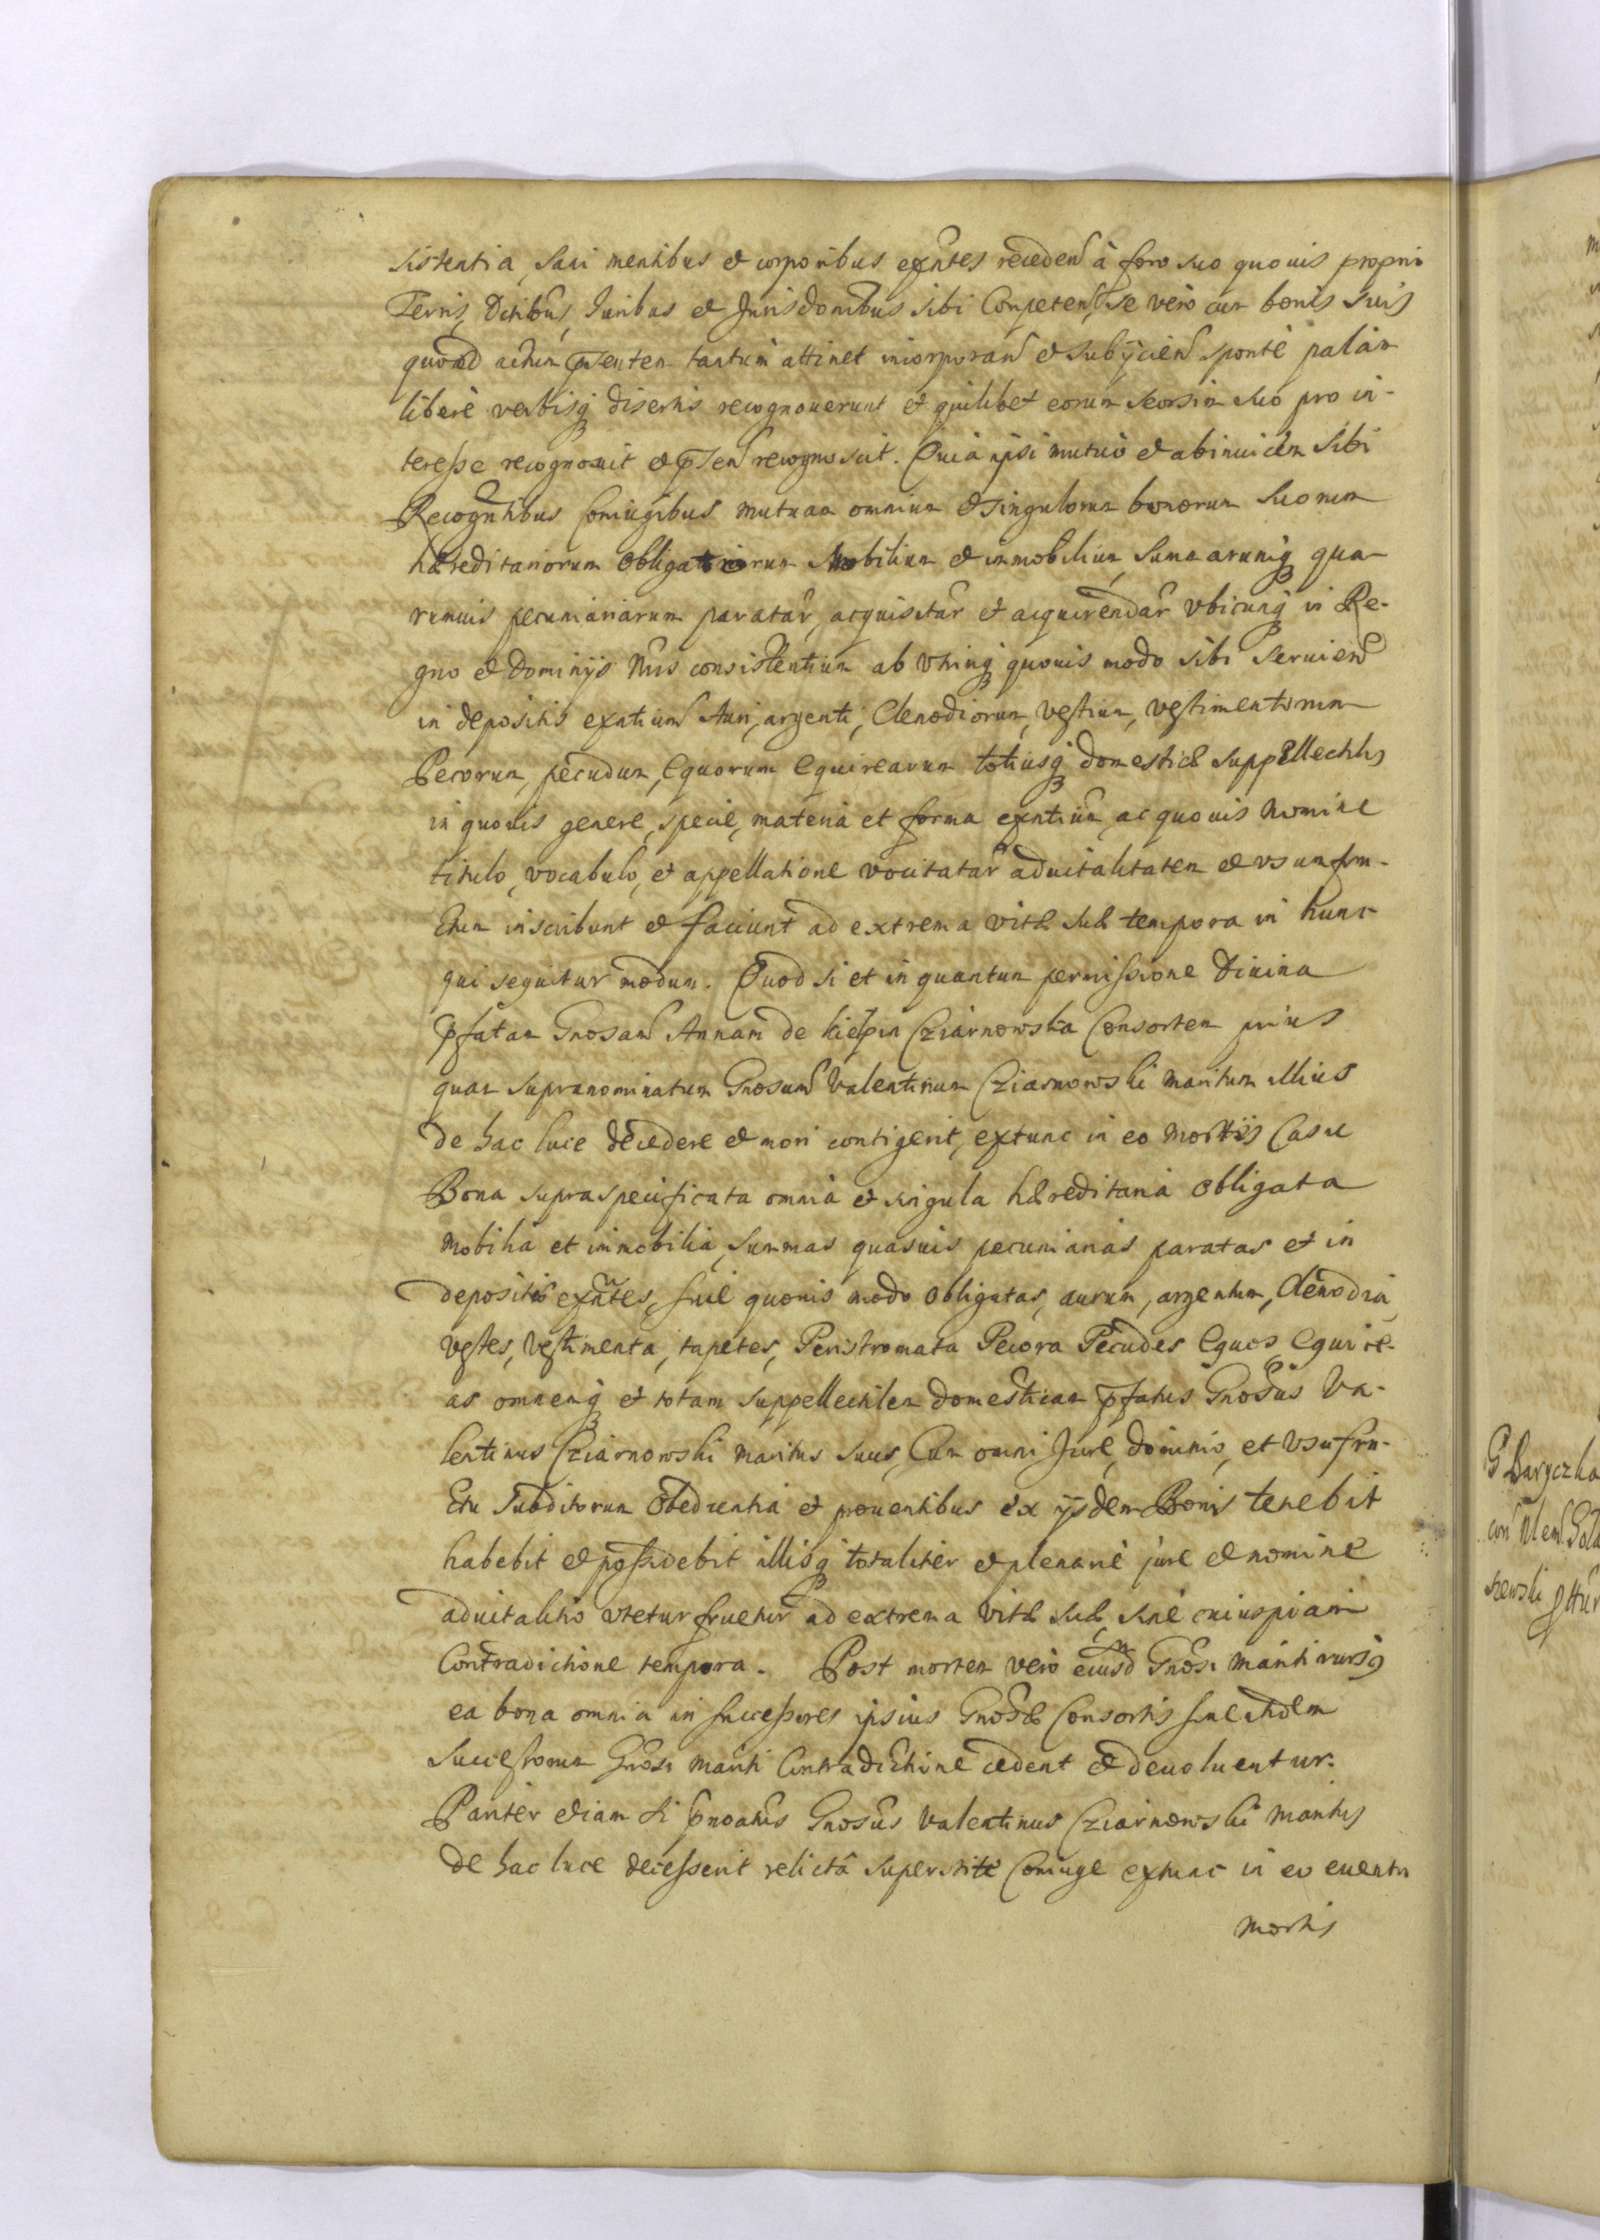 sistentia, sani mentibus et corporibus exñtes receden̄ à foro suo quouis proprio
Terris, Ditibus, Juribus et Jurisdonibus sibi Competen̄, Se verò cum bonis suis
quoad actum p̄sentem tantum attinet incorporan̄ et subijcien̄ spontè palàm
liberè verbisq́ disertis recognouerunt et quilibet eorum seorsim suo pro in-
teresse recognouit et p̄sen̄ recognoscit. Quià ipsi mutuò et abinuicèm sibi
Recogn̄tibus Coniugibus mutuam omnium et singulorum bonorum suorum
hæreditariorum obligatoriorum Mobilium et immobilium, Summarumq́ qua-
rumuis pecuniariarum paratar̄, acquisitar̄ et acquirendar̄ vbicunq́ in Re-
gno et Dominijs Nr̄is consistentium ab vtrinq́ quouis modo sibi seruien̄
in depositis exn̄tium Auri, argenti, Clenodiorum, vestium, vestimentorum
Pecorum, pecudum, Equorum Equirearum totiusq́ domesticæ suppellectilis
in quouis genere, specie, materia et forma exn̄tium, ac quouis Nomine
titulo, vocabulo, et appellatione vocitatar̄ aduitalitatem et vsumfru-
ctum inscribunt et faciunt ad extrema vitæ suæ tempora in hunc
qui sequitur modum. Quod si et in quantum permissione Diuina
p̄fatam Gnosam̄ Annam de Kiełpin Cziarnowska Consortem prius
quam supranominatum Gnosum̄ Valentinum Cziarnowski maritum illius
de hac luce decedere et mori contigerit, extunc in eo Mortis Casu
Bona supraspecificata omnià et singula hæreditaria obligata
Mobilia et immobilia, Summas quasuis pecuniarias paratas et in
depositis exn̄tes, siue quouis modo obligatas, aurum, argentum, Clenodià,
vestes, vestimenta, tapetes, Peristromata Pecora Pecudes Equos Equire-
as omnemq́ et totam suppellectilem domesticam p̄fatus Gnosus Va-
lentinus Cziarnowski Maritus suus, Cum omni Jure, dominio, et vsufru-
ctu Subditorum obedientià et prouentibus èx ijsdem Bonis tenebit
habebit et possidebit illisq́ totalitèr et plenariè jure et nomine
aduitalitio vtetur fruetur ad extrema vitæ suæ, sinè cuiuspiam
Contradictione tempora. Post mortem verò eiusd Gnosi Mariti rursus
ea bona omnia in successores ipsius Gnosæ Consortis sine
Successorum Gnosi Mariti Contradictione cedent et deuoluentur.
Paritèr etiam si Gnosus Valentinus Cziarnowski Maritus
de hac luce decesserit relictâ superstite Coniuge extunc in eo euentu
Mortis
G Baryczka